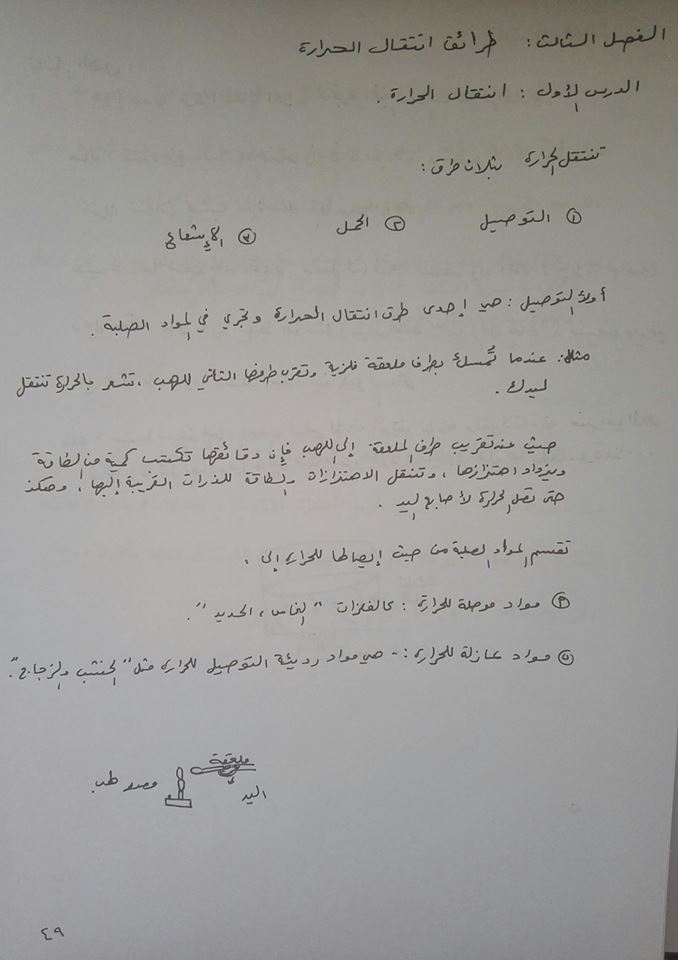 الفصل الثالث: طرائق انتقال الحرارة
الدرس الأول: انتقال الحرارة.
تنتقل الحرارة بثلاث طرق:
① التوصيل ② الحمل ③ الإشعاع
أولاً التوصيل: هي إحدى طرق انتقال الحرارة وتجري في المواد الصلبة.
مثال: عندما تُمسك بطرف ملعقة فلزية وتقرب طرفها الثاني للهب، تشعر بالحرارة تنتقل
ليدك.
حيث عند تقريب طرف الملعقة إلى اللهب فإن دقائقها تكتسب كمية من الطاقة
ويزداد اهتزازها، وتنتقل الاهتزازات والطاقة للذرات القريبة إليها، وهكذا
حتى تصل الحرارة لأصابع اليد.
تقسم المواد الصلبة من حيث إيصالها للحرارة إلى:
مواد موصلة للحرارة: كالفلزات "النحاس، الحديد".
مواد عازلة للحرارة:- هي مواد رديئة التوصيل للحرارة مثل "الخشب والزجاج".
ملعقة
مصدر لهب
اليد
٤٩